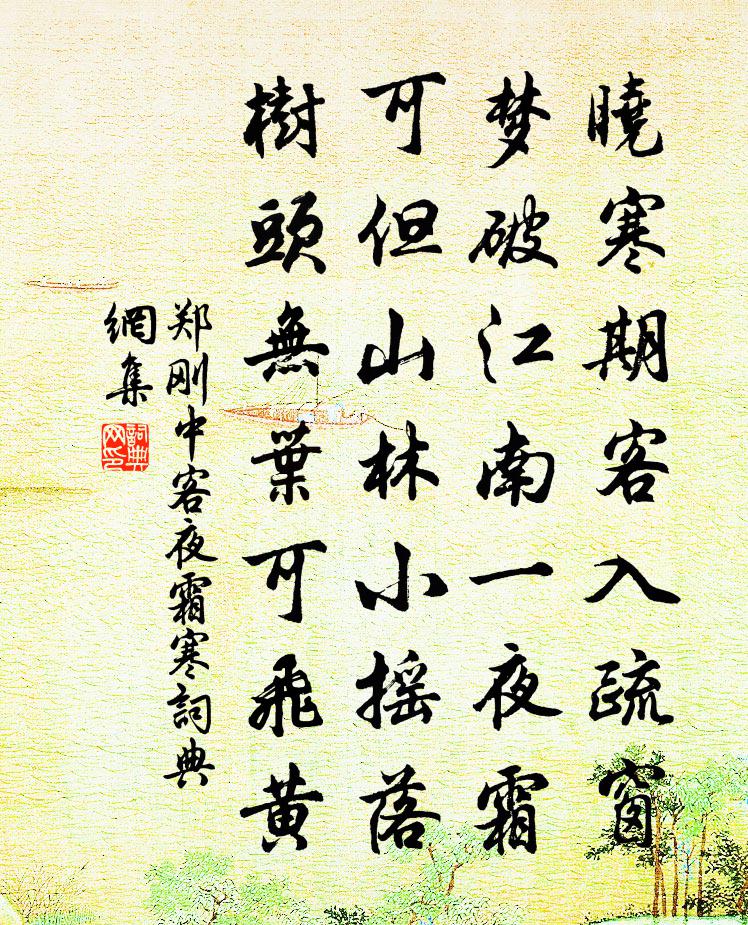 曉寒期客入疏窗
梦破江南一夜霜
可但山林小摇落
樹頭無葉可飛黄
郑刚中客夜霜寒詞典
網集
詞典
网印